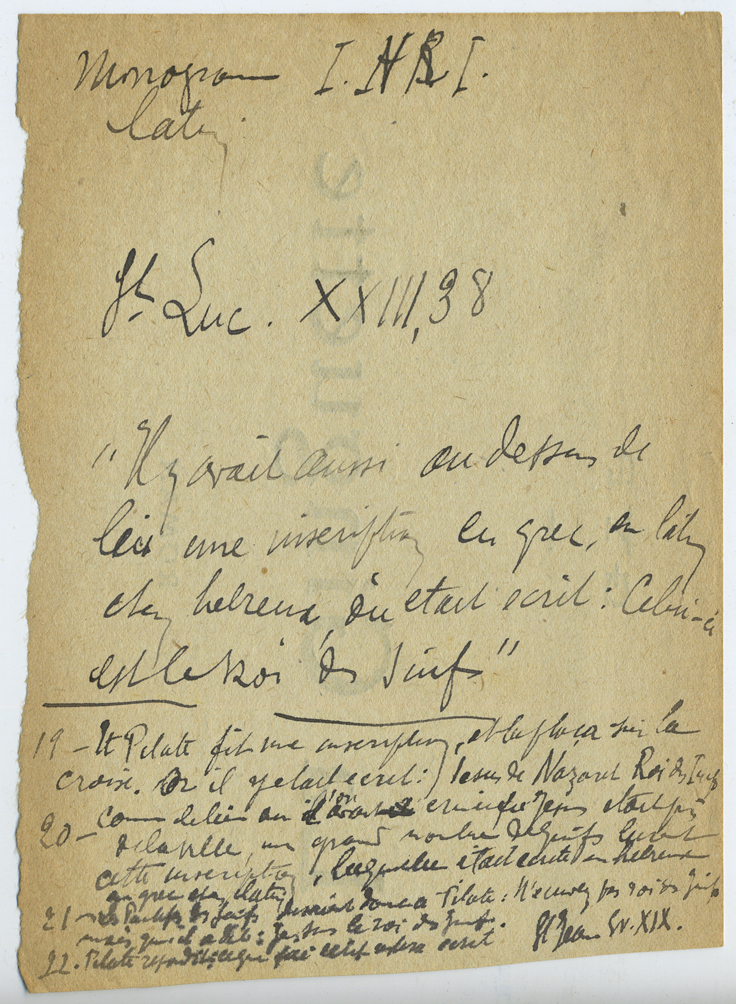 Monogramme I.N.R.I.
latin
St Luc. XXIII, 38
"Il y avait aussi au dessus de
lui une inscription en grec, en latin
et en hebreux, où etait ecrit : Celui-ci
est le Roi des Juifs"
19 – Et Pilate fit une inscription, et la plaça sur la
croix. Or il y etait ecrit : Jesus de Nazaret Roi des Juifs
20 – Comme le lieu où crucifié Jesus etait près
de la ville, un grand nombre de Juifs lurent
cette inscription, laquelle etait ecrite en hebreux
en grec et en latin
21 – des Juifs disaient donc a Pilate : N'ecrivez pas roi des Juifs
mais qu'il a dit : Je suis le roi des Juifs.
22. Pilate repondit : ce que j'ai ecrit ecrit St Jean Ev. XIX.